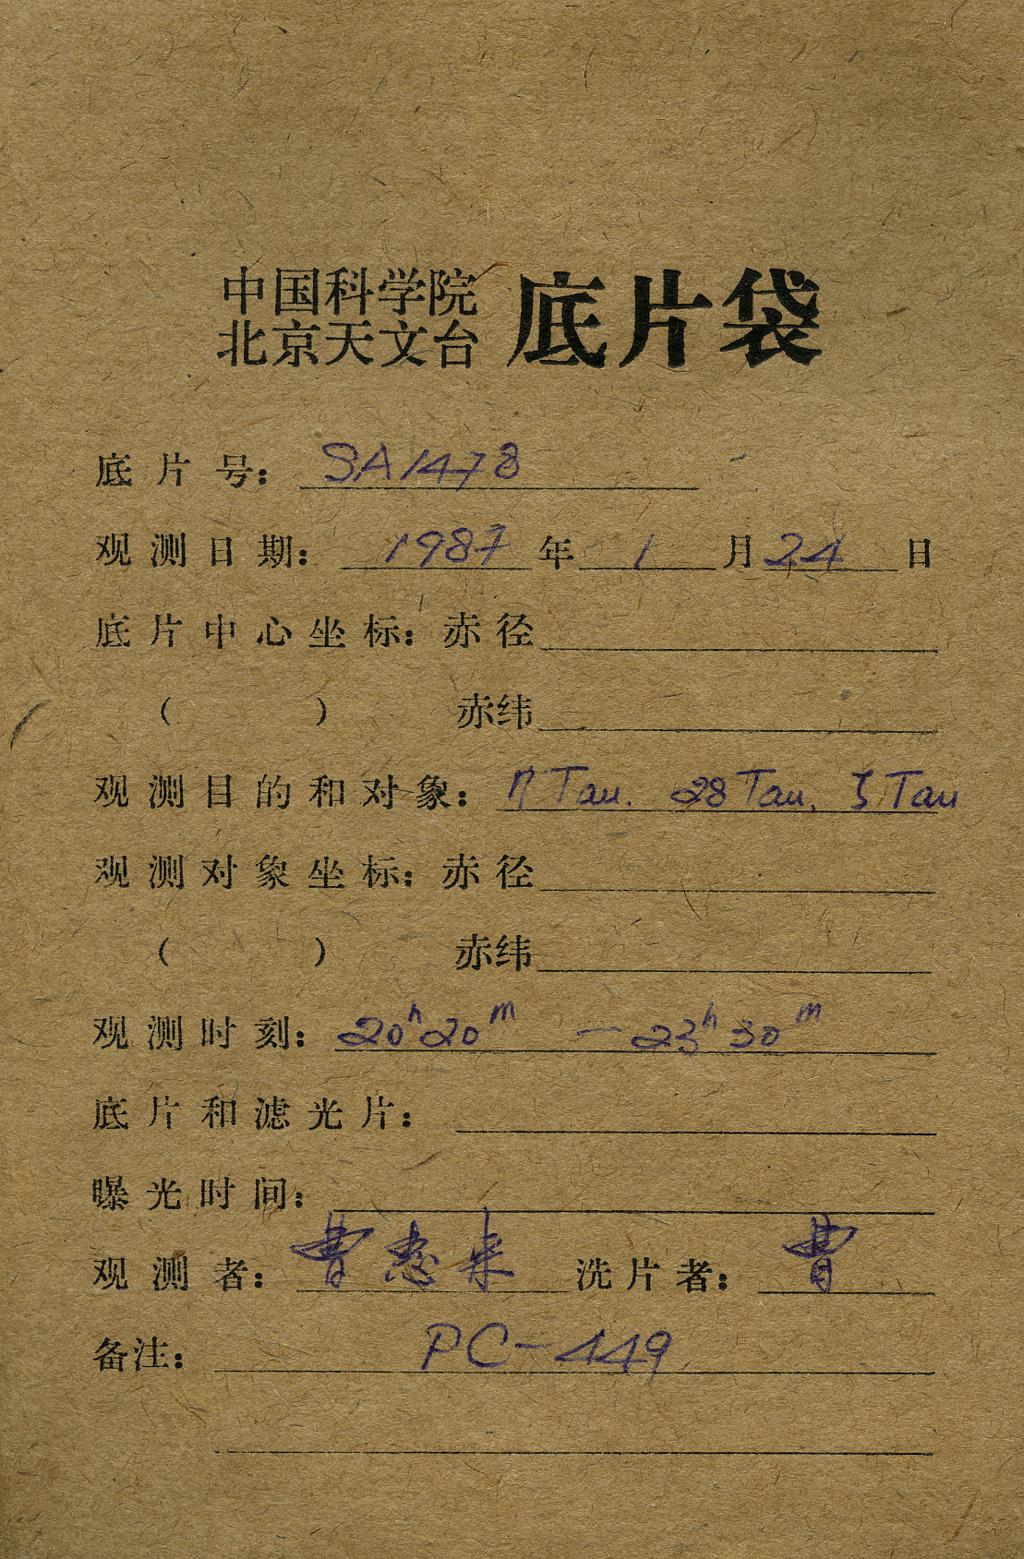 中国科学院
北京天文台 底片袋
底片号: SA1478
观测日期: 1987 年 1 月 24 日
底片中心坐标: 赤径
( ) 赤纬
观测目的和对象: η Tau. 28 Tau, ζ Tau
观测对象坐标: 赤径
( ) 赤纬
观测时刻: 20ʰ20ᵐ — 23ʰ30ᵐ
底片和滤光片:
曝光时间:
观测者: 曹惠来 洗片者: 曹
备注: PC-449